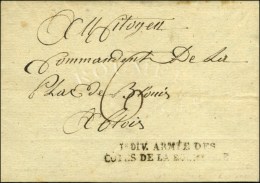 Au Citoyen
Commandant De La
Place de Blois
A Blois
1e DIV. ARMÉE DES
CÔTES DE LA R